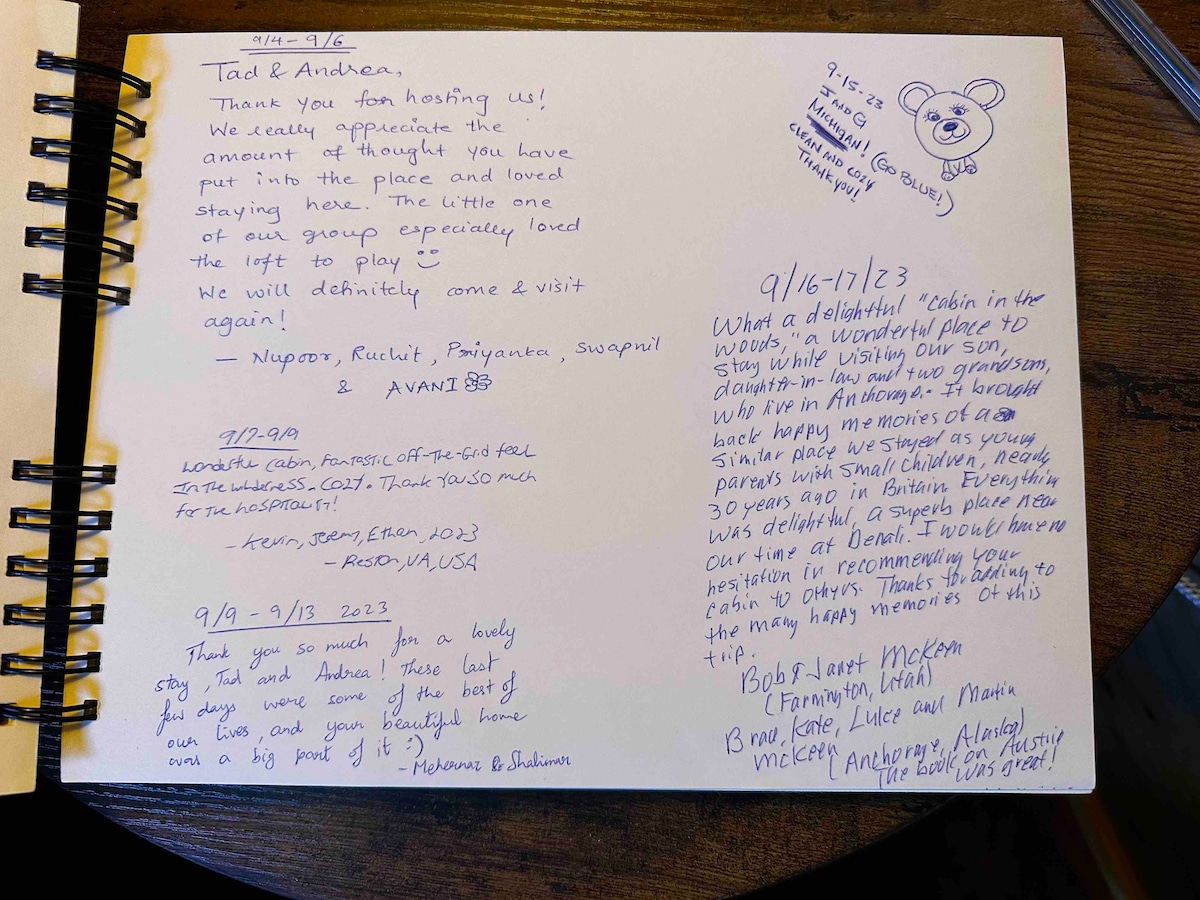 9/4 - 9/6
Tad & Andrea,
Thank you for hosting us!
We really appreciate the
amount of thought you have
put into the place and loved
staying here. The little one
of our group especially loved
the loft to play
We will definitely come & visit
again!
— Nupoor, Ruchit, Priyanka, Swapnil
& AVANI
9/7-9/9
Cabin, Fantastic Off-The-Grid feel
In The wilderness. Cozy. Thank You So Much
for The Hospitality!
- Kevin, Jeremy, Ethan, 2023
- Reston, VA, USA
9/9 - 9/13 2023
Thank you so much for a lovely
stay, Tad and Andrea! These last
few days were some of the best of
our lives, and your beautiful home
was a big part of it :)
- Mehernaz & Shalimar
9-15-23
J AND G
MICHIGAN! (GO BLUE!)
CLEAN AND COZY
THANK YOU!
9/16-17/23
What a delightful "cabin in the
woods," a wonderful place to
stay while visiting our son,
daughter-in-law and two grandsons,
who live in Anchorage. It brought
back happy memories of a
similar place we stayed as young
parents with small children, nearly
30 years ago in Britain. Everything
was delightful, a superb place near
our time at Denali. I would have no
hesitation in recommending your
cabin to others. Thanks for adding to
the many happy memories of this
trip.
Bob & Janet McKeen
(Farmington, Utah)
Brad, Kate, Luke and Martin
McKeen (Anchorage, Alaska)
The book on Austria
was great!